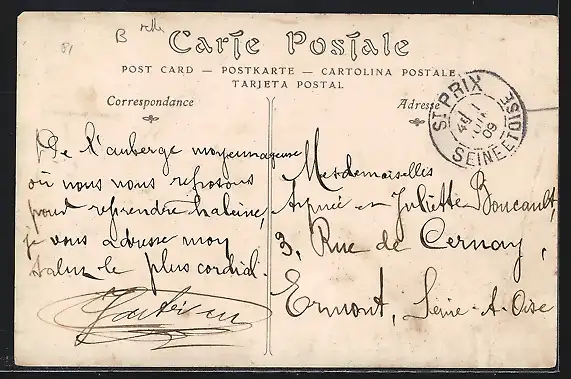 B
Carte Postale
POST CARD — POSTKARTE — CARTOLINA POSTALE
TARJETA POSTAL
Correspondance
Adresse
ST PRIX
09
SEINE ET OISE
De l'auberge moyennageuse
où nous nous reposons
pour reprendre haleine,
je vous adresse mon
salut le plus cordial.
Mesdemoiselles
Aimée et Juliette Boucault,
3, Rue de Cernay,
Ermont, Seine-et-Oise